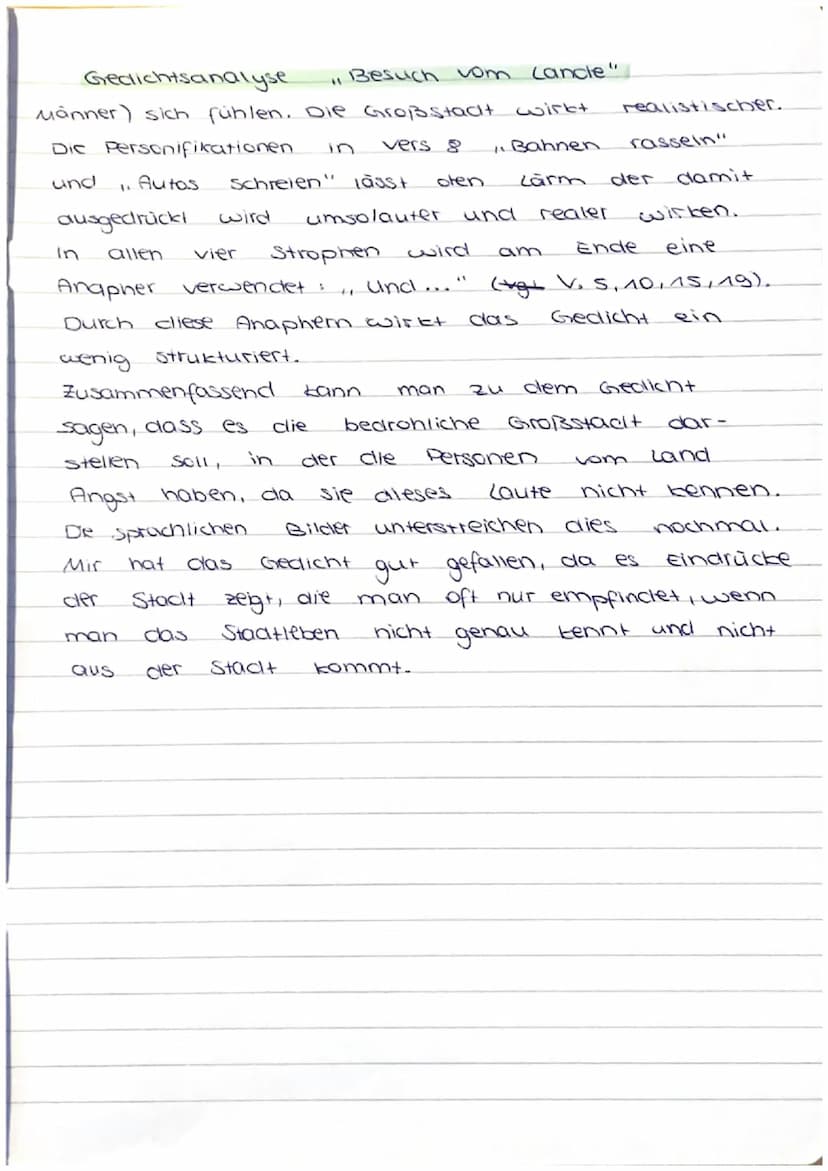 Gedichtsanalyse „Besuch vom Lande"
Männer) sich fühlen. Die Großstadt wirkt realistischer.
Die Personifikationen in Vers 8 „Bahnen rasseln"
und „Autos schreien" lässt den Lärm der damit
ausgedrückt wird umsolauter und realer wirken.
In allen vier Strophen wird am Ende eine
Anapher verwendet: „Und..." (vgl. V. 5, 10, 15, 19).
Durch diese Anaphern wirkt das Gedicht ein
wenig strukturiert.
Zusammenfassend kann man zu dem Gedicht
sagen, dass es die bedrohliche Großstadt dar-
stellen soll, in der die Personen vom Land
Angst haben, da sie dieses Laute nicht kennen.
Die sprachlichen Bilder unterstreichen dies nochmal.
Mir hat das Gedicht gut gefallen, da es Eindrücke
der Stadt zeigt, die man oft nur empfindet, wenn
man das Stadtleben nicht genau kennt und nicht
aus der Stadt kommt.